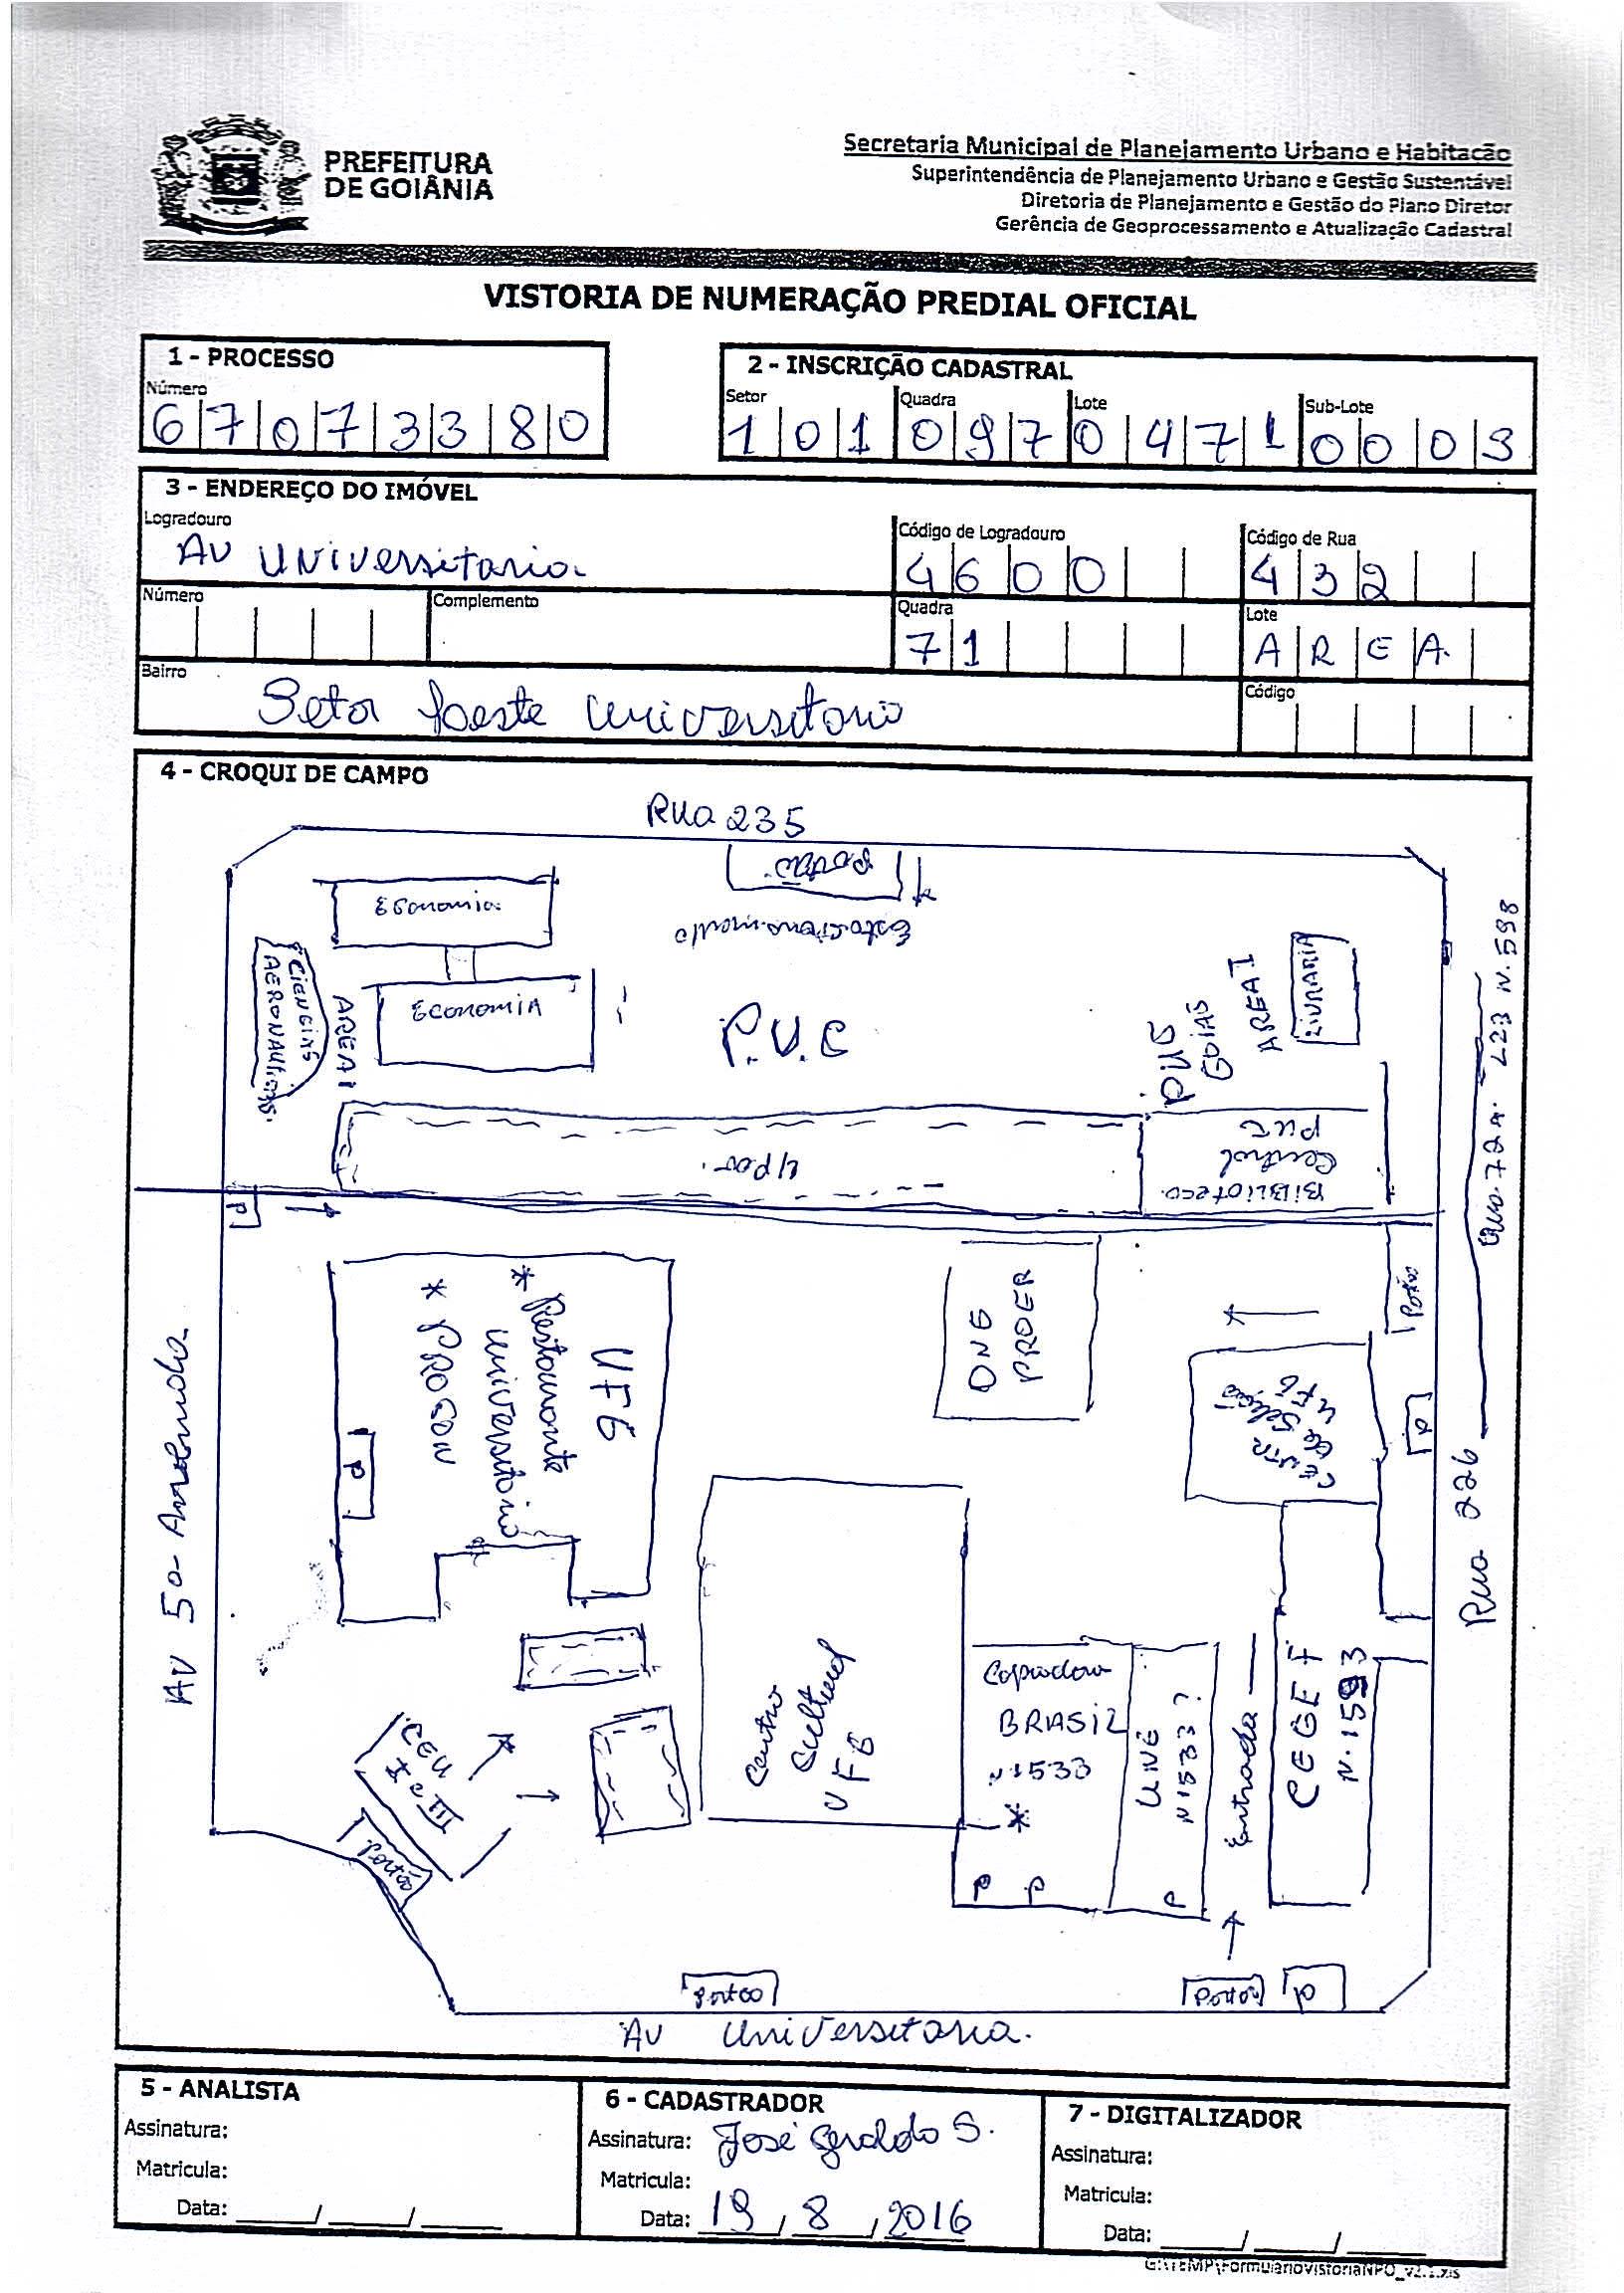 PREFEITURA
DE GOIÂNIA
Secretaria Municipal de Planejamento Urbano e Habitação
Superintendência de Planejamento Urbano e Gestão Sustentável
Diretoria de Planejamento e Gestão do Plano Diretor
Gerência de Geoprocessamento e Atualização Cadastral
VISTORIA DE NUMERAÇÃO PREDIAL OFICIAL
1 - PROCESSO
Número
6 7 0 7 3 3 8 0
2 - INSCRIÇÃO CADASTRAL
Setor Quadra Lote Sub-Lote
1 0 1 0 9 7 0 4 7 1 0 0 0 3
3 - ENDEREÇO DO IMÓVEL
Logradouro
Av Universitaria
Código de Logradouro
4 6 0 0
Código de Rua
4 3 2
Número
Complemento
Quadra
7 1
Lote
A R E A.
Bairro
Setor Leste Universitario
Código
4 - CROQUI DE CAMPO
Rua 235
Portão
Estacionamento
Economia
Economia
CIENCIAS
AERONAUTICAS.
AREA I
P.U.C
PUC
GOIAS
AREA I
LIVRARIA
BIBLIOTECA
Central
PUC
N. 598
P
Av 5a Avenida
* Restaurante
universitário
* PROCON
UFG
P
ONG
PROER
Portão
CENTRO
de Seleção
UFG
P
Rua 226
CEU
I e III
Portão
Centro
Cultural
UFG
Copiadora
BRASIL
N 1533
*
P P
UNE
N 1533?
P
Entrada
CEGEF
N. 1593
Portão
Portão
P
Av Universitaria.
5 - ANALISTA
Assinatura:
Matricula:
Data: ____/____/____
6 - CADASTRADOR
Assinatura: José Geraldo S.
Matricula:
Data: 19/8/2016
7 - DIGITALIZADOR
Assinatura:
Matricula:
Data: ____/____/____
G:\TEMP\FormularioVistoriaNPO_v2.1.xls